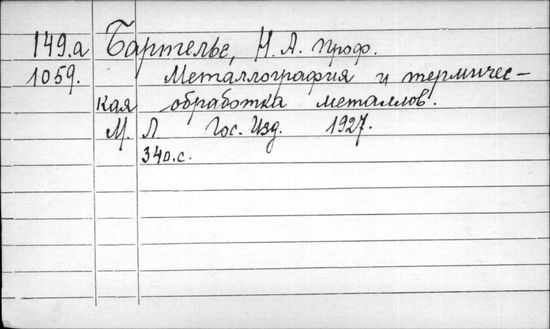 149.а Бартелье, Н. А. проф.
1059. Металлография и термичес-
кая обработка металлов.
М. Л. Гос. Изд. 1927.
340.с.